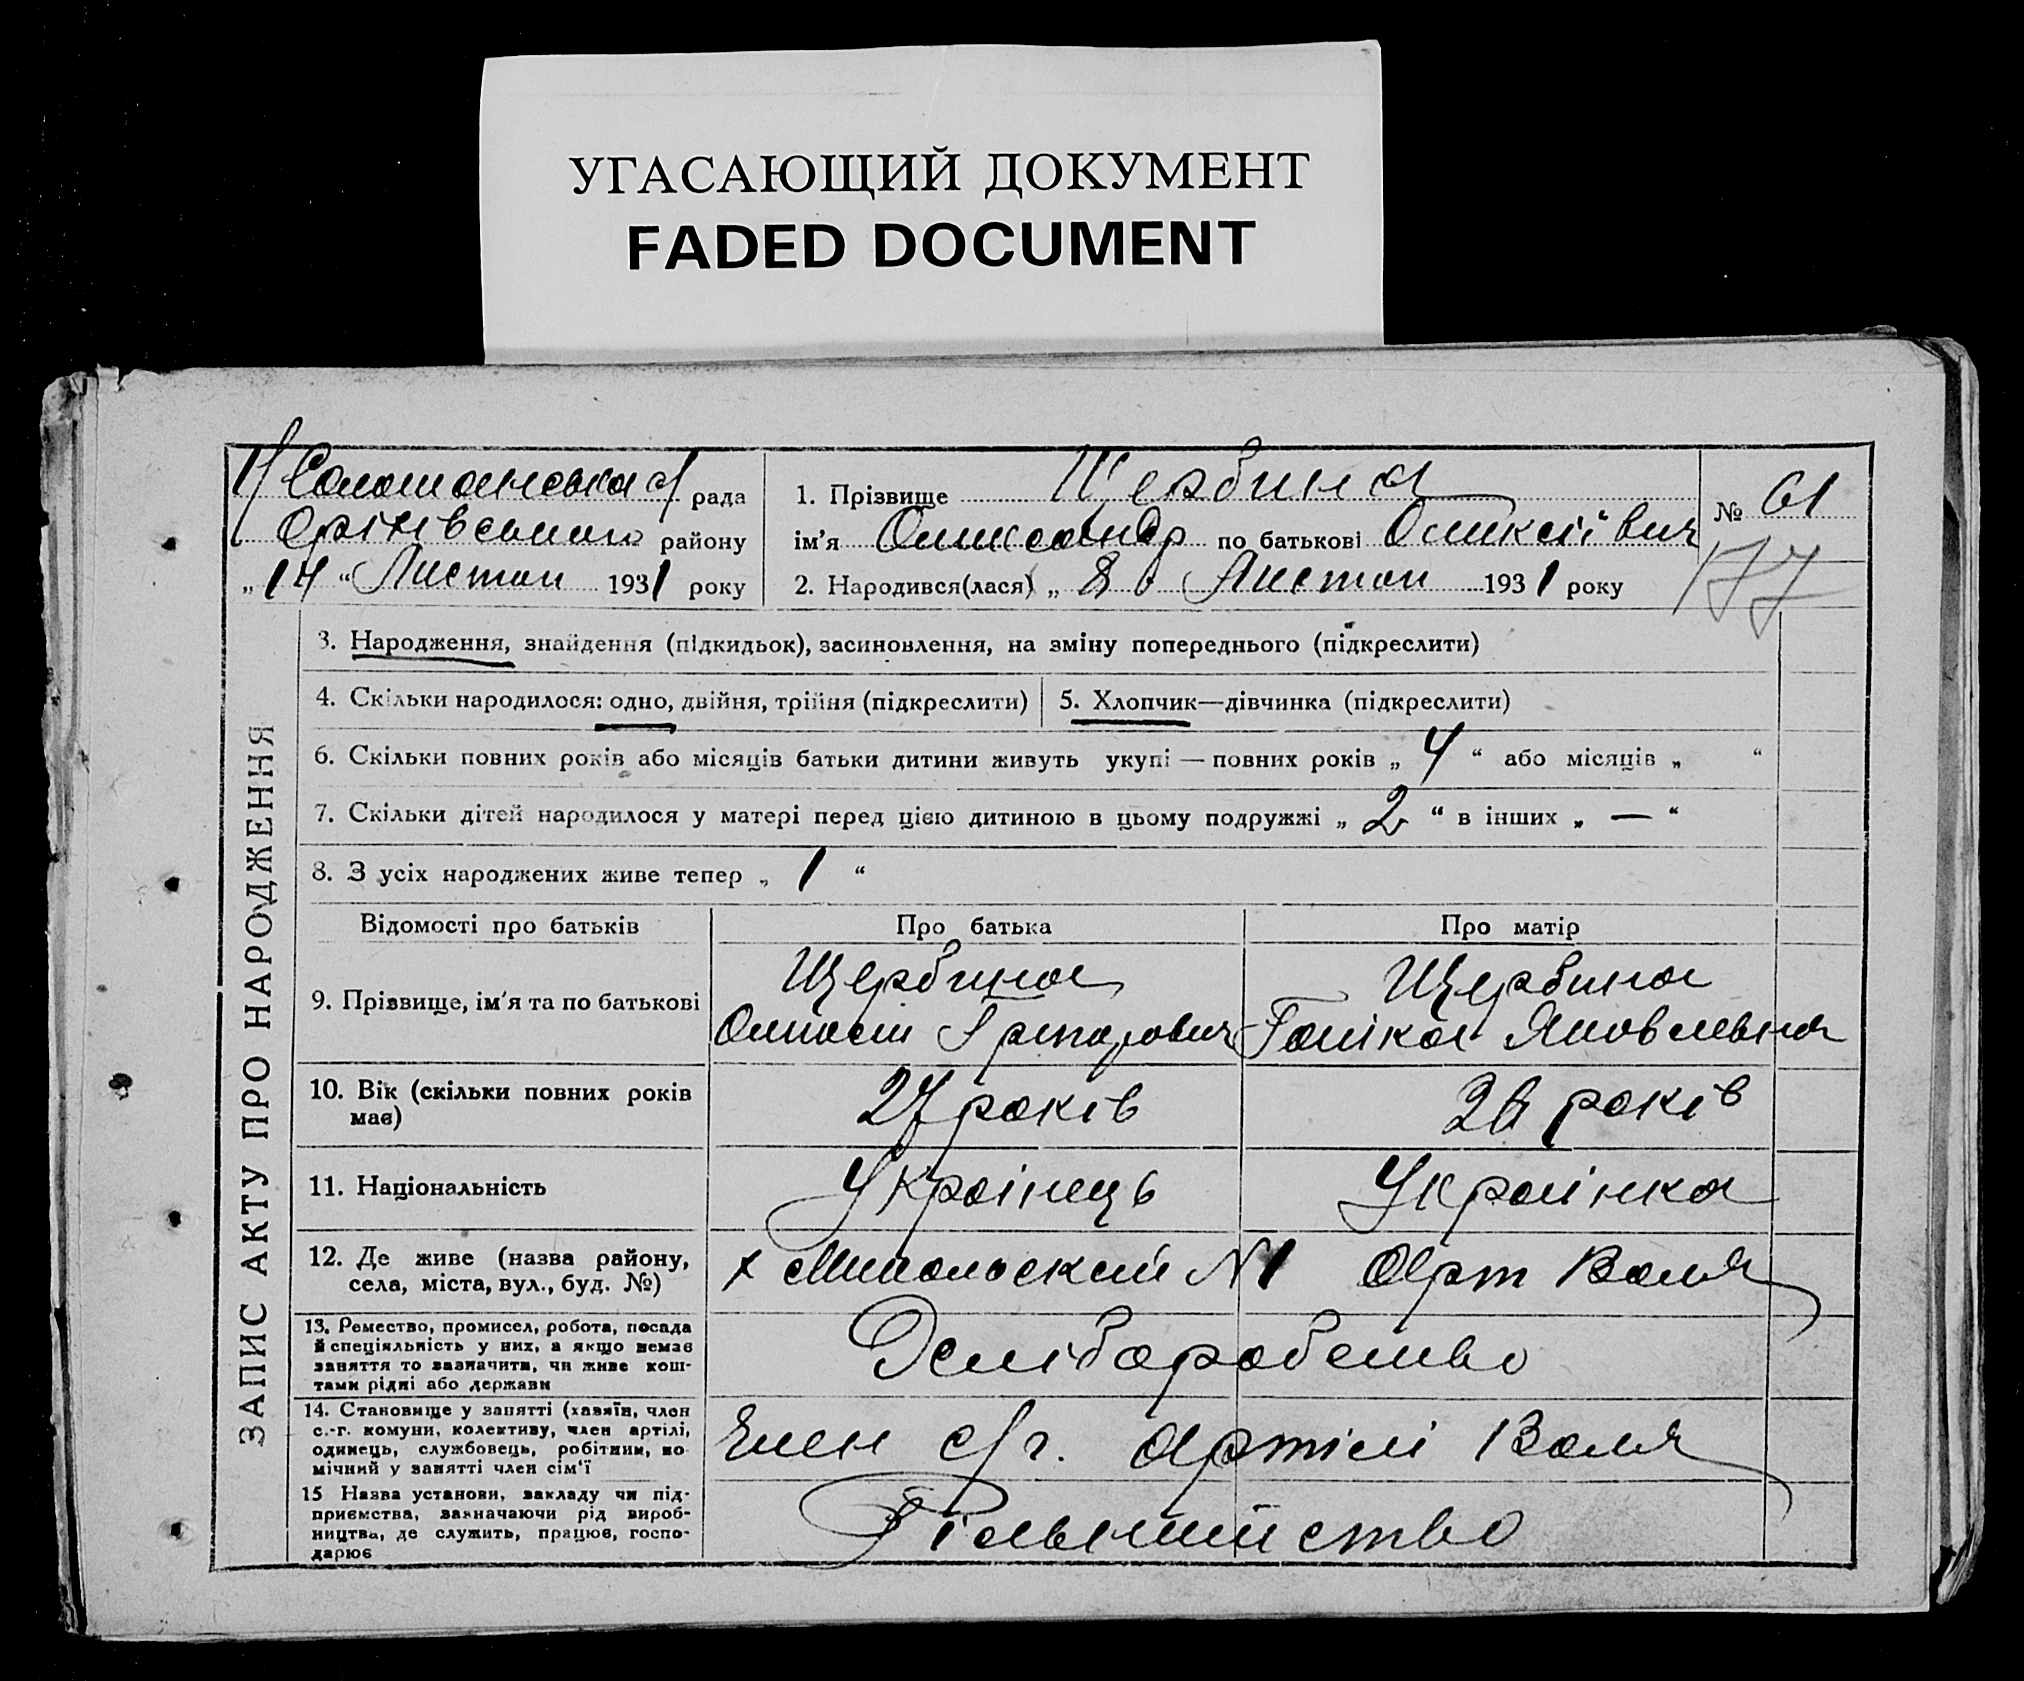 УГАСАЮЩИЙ ДОКУМЕНТ
FADED DOCUMENT
рада
району
„14“ Листоп 1931 року
1. Прізвище Щербина
ім'я Олександр по батькові
2. Народився(лася) „8 Листоп 1931 року
№ 61
177
ЗАПИС АКТУ ПРО НАРОДЖЕННЯ
3. Народження, знайдення (підкидьок), засиновлення, на зміну попереднього (підкреслити)
4. Скільки народилося: одно, двійня, трійня (підкреслити)
5. Хлопчик—дівчинка (підкреслити)
6. Скільки повних років або місяців батьки дитини живуть укупі — повних років „ 4 “ або місяців „ “
7. Скільки дітей народилося у матері перед цією дитиною в цьому подружжі „ 2 “ в інших „ — “
8. З усіх народжених живе тепер „ 1 “
Відомості про батьків
Про батька
Про матір
9. Прізвище, ім'я та по батькові
Щербина
Щербина
Яковлевна
10. Вік (скільки повних років
має)
27 років
26 років
11. Національність
Українець
Українка
12. Де живе (назва району,
села, міста, вул., буд. №)
х N1 Арт Воля
13. Ремество, промисел, робота, посада
й спеціяльність у них, а якщо немає
заняття то зазначити, чи живе кош-
тами рідні або держави
14. Становище у занятті (хазяїн, член
с.-г. комуни, колективу, член артілі,
одинець, службовець, робітник, по
мічний у занятті член сім'ї
Член с/г. Артілі Воля
15 Назва установи, закладу чи під-
приємства, зазначаючи рід вироб-
ництва, де служить, працює, госпо-
дарює